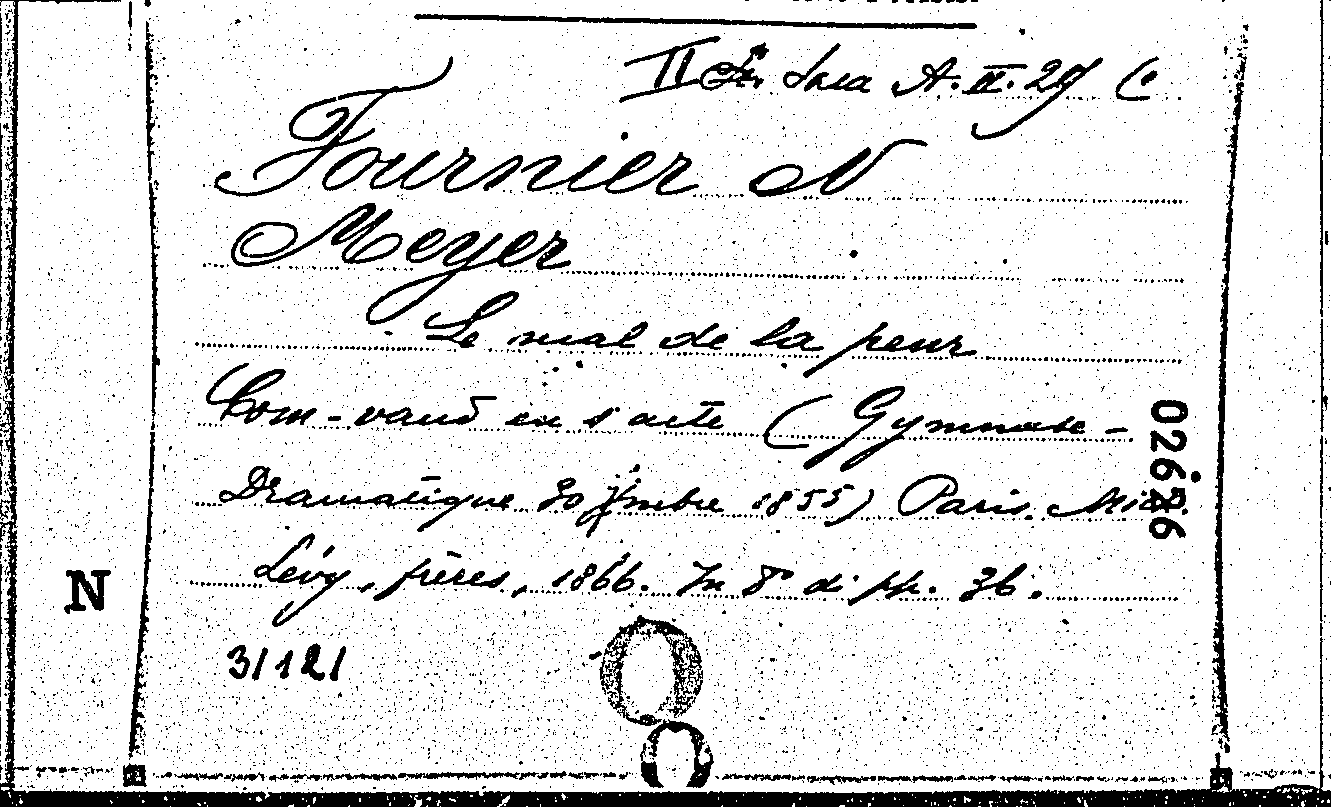 II Sala A. II. 29 (
Fournier N
Meyer
Le mal de la peur
Com-vaud en 1 acte (Gymnase-
Dramatique 30 1855) Paris. Mich.
Lévy, frères, 1866. In 8° di pp. 36.
31121
02626
N